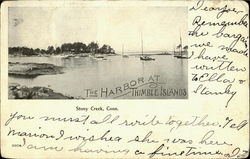 Dear Joe,
Remember
the barga
we made
I have
written
to Ella &
Stanley
THE HARBOR AT
THIMBLE ISLANDS
Stony Creek, Conn.
you must all write together. Tell
Marion I wish she was here
am having a fine time.